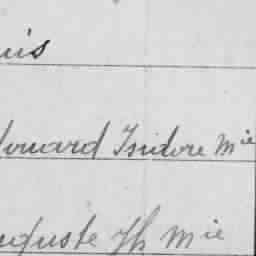 uis
douard Isidore Mie
uguste Jh Mie